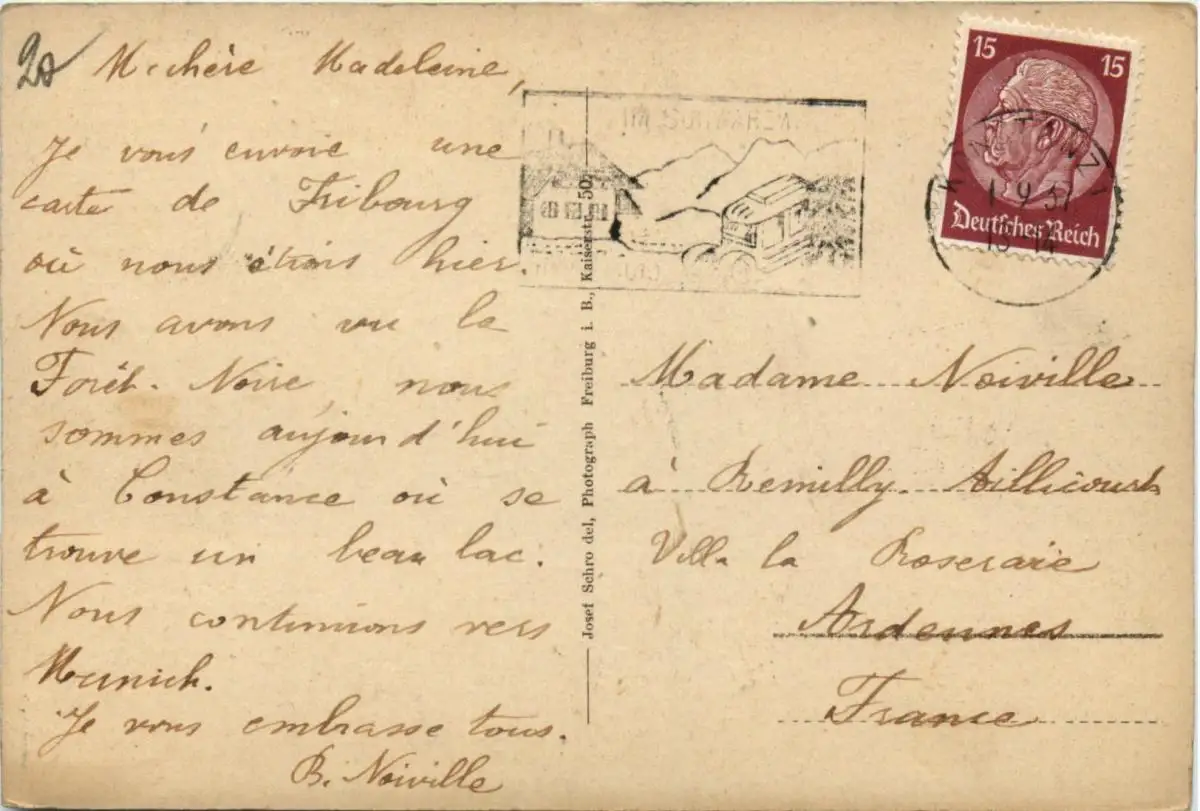 20
Ma chère Madeleine,
Je vous envoie une
carte de Fribourg
où nous étions hier.
Nous avons vu la
Forêt-Noire, nous
sommes aujourd'hui
à Constance où se
trouve un beau lac.
Nous continuons vers
Munich.
Je vous embrasse tous.
B. Noiville
Josef Schro del, Photograph Freiburg i. B., Kaiserstr. 50.
15 15
Deutsches Reich
KONSTANZ
1 9 37
Madame Noiville
à Remilly-Aillicourt
Villa la Roseraie
Ardennes
France